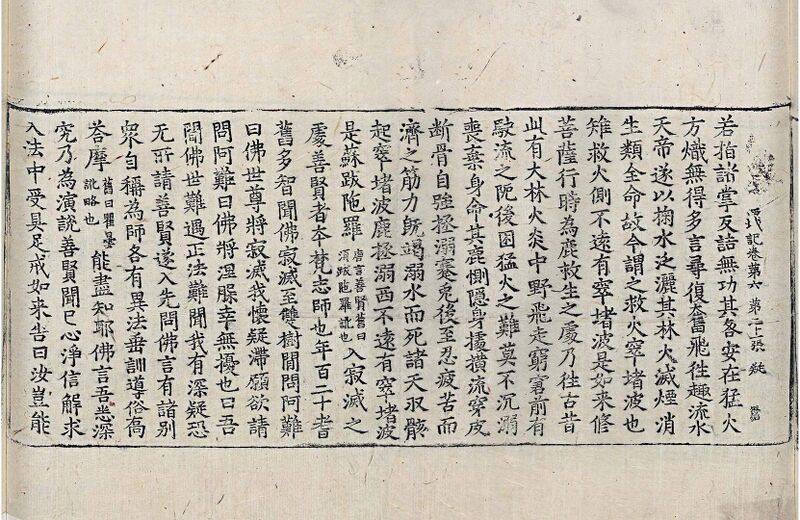 若指諸掌反詰無功其咎安在猛火
方熾無得多言尋復奮飛往趣流水
天帝遂以掬水泛灑其林火滅煙消
生類全命故今謂之救火窣堵波也
雉救火側不遠有窣堵波是如來修
菩薩行時為鹿救生之處乃往古昔
此有大林火炎中野飛走窮窘前有
駛流之阨後困猛火之難莫不沉溺
喪棄身命其鹿惻隱身據橫流穿皮
断骨自強拯溺蹇兎後至忍疲苦而
濟之筋力既竭溺水而死諸天収骸
起窣堵波鹿拯溺西不遠有窣堵波
是蘇跋陁羅唐言善賢舊曰須跋陁羅訛也入寂滅之
處善賢者本梵志師也年百二十耆
舊多智聞佛寂滅至雙樹間問阿難
曰佛世尊將寂滅我懷疑滯願欲請
問阿難曰佛將涅槃幸無擾也曰吾
聞佛世難遇正法難聞我有深疑恐
无所請善賢遂入先問佛言有諸別
衆自稱為師各有異法垂訓導俗喬
荅摩舊曰瞿曇訛略也能盡知耶佛言吾悉深
究乃為演說善賢聞已心淨信解求
入法中受具足戒如來告曰汝豈能
域記卷第六 第 張